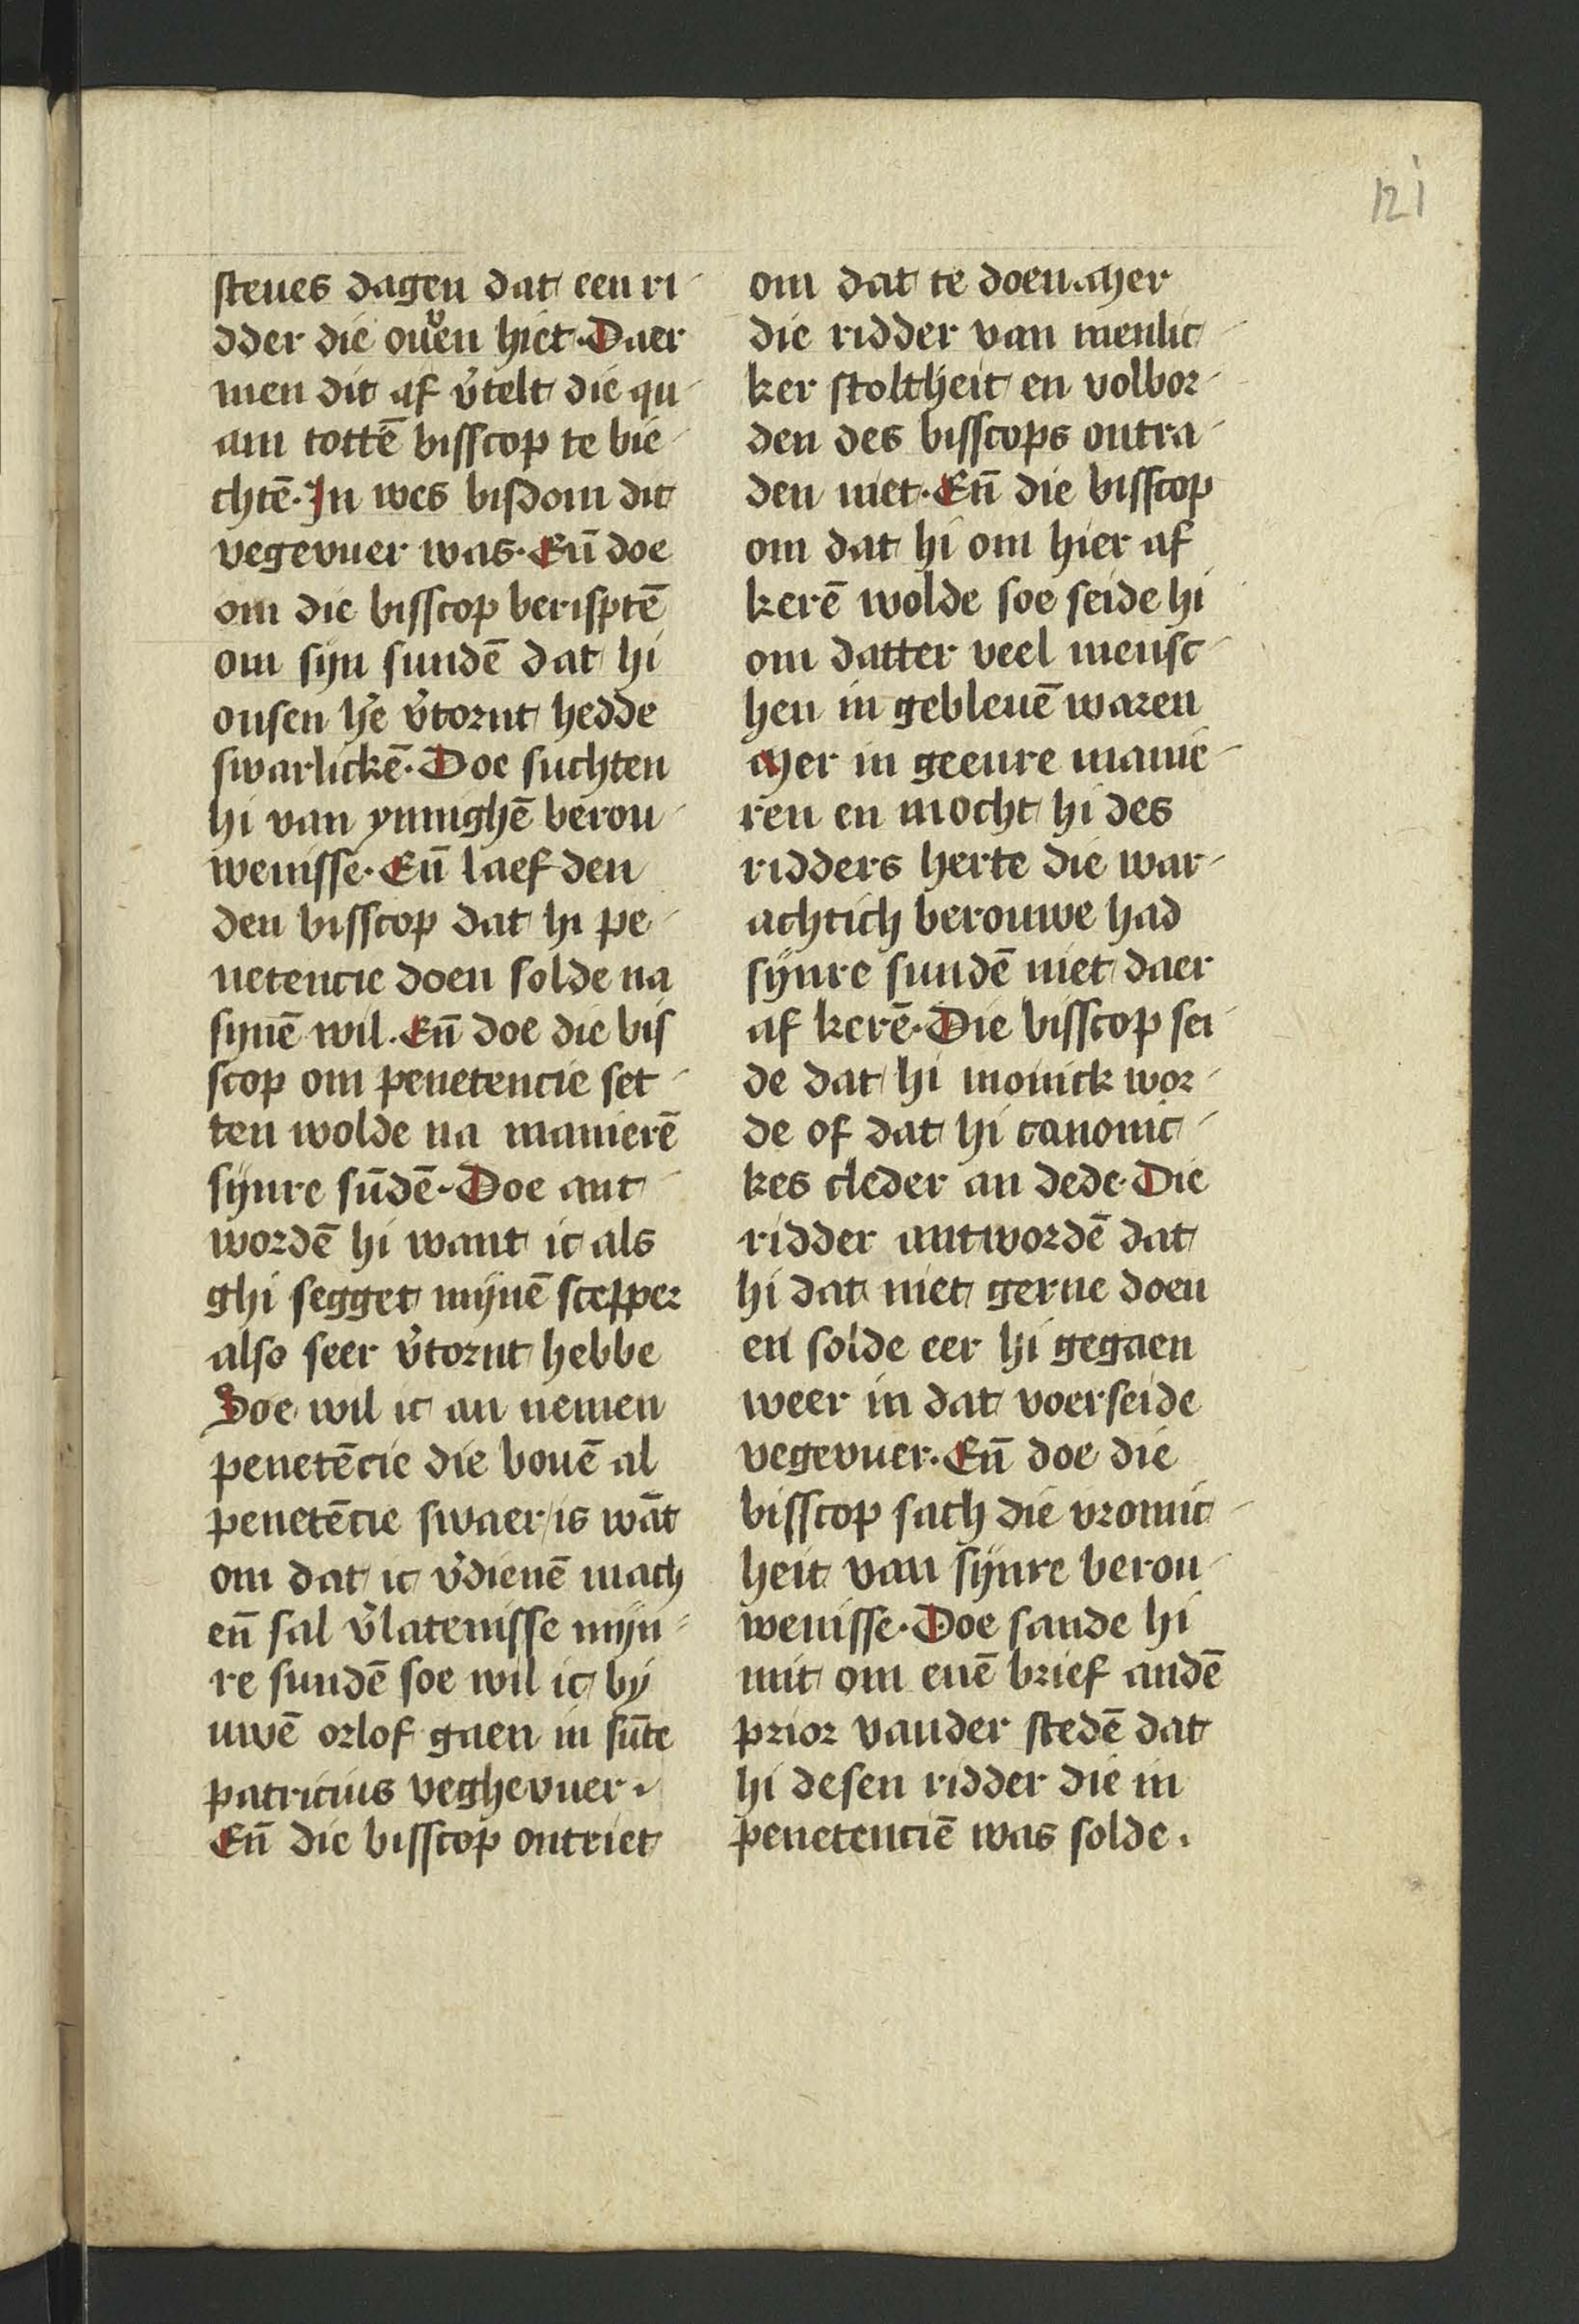 121
steues dagen dat een ri-
dder die ouͮen hiet. Daer
men dit af v̉telt die qu-
am tottē bisscop te bie-
chtē. In wes bisdom dit
vegevuer was. Eñ doe
om die bisscop berisptē
om syn sundē dat hi
onsen hẻ v̉tornt hedde
swarlickē. Doe suchten
hi van ynnighē berou-
wenisse. Eñ laef den
den bisscop dat hi pe-
netencie doen solde na
synē wil. Eñ doe die bis
scop om penetencie set-
ten wolde na manierē
synre sūdē. Doe ant-
wordē hi want ic als
ghi segget mynē scepper
also seer v̉tornt hebbe
Soe wil ic an nemen
penetēcie die bouē al
penetēcie swaer is wāt
om dat ic v̉dienē mach
eñ sal v̉latenisse mijn-
re sundē soe wil ic by
uwē orlof gaen in sūte
patricius veghevuer.
Eñ die bisscop ontriet
om dat te doen. Mer
die ridder van menlic-
ker stoltheit en volbor-
den des bisscops ontra-
den niet. Eñ die bisscop
om dat hi om hier af
kerē wolde soe seide hi
om datter veel mensc-
hen in gebleuē waren
Mer in geenre manie-
ren en mocht hi des
ridders herte die war-
achtich berouwe had
synre sundē niet daer
af kerē. Die bisscop sei-
de dat hi monick wor-
de of dat hi canonic-
kes cleder an dede. Die
ridder antwordē dat
hi dat niet gerne doen
en solde eer hi gegaen
weer in dat voerseide
vegevuer. Eñ doe die
bisscop sach die vromic-
heit van synre berou-
wenisse. Doe sande hi
mit om enē brief andē
prior vander stedē dat
hi desen ridder die in
penetenciē was solde.